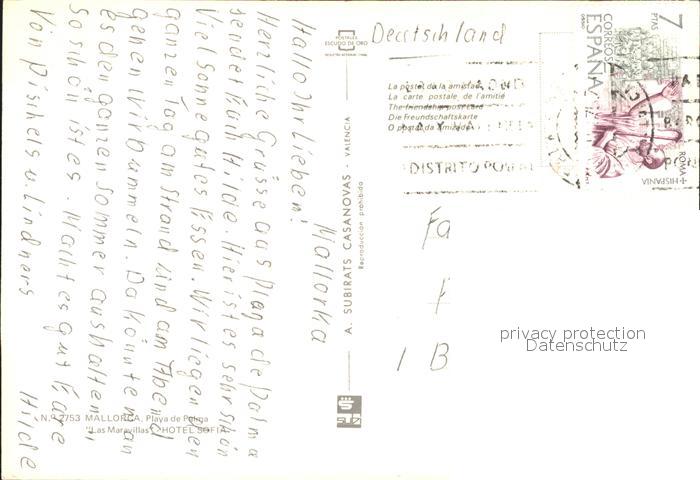 Mallorka
Hallo Ihr Lieben!
Herzliche Grüsse aus Plaga de Palma
sendet Euch Hilde. Hier ist es sehr schön
Viel Sonne gutes Essen. Wir liegen den
ganzen Tag am Strand und am Abend
gehen wir bummeln. Da könnte man
es den ganzen Sommer aushalten
so schön ist es. Macht es gut Eure
Hilde
Von Pischels u. Lindners
N.º 2753 MALLORCA, Playa de Palma
"Las Maravillas". HOTEL SOFIA
A. SUBIRATS CASANOVAS - VALENCIA
Reproducción prohibida
SUBI
POSTALES
ESCUDO DE ORO
Deutschland
La postal de la amistad
La carte postale de l'amitié
The friendship post card
Die Freundschaftskarte
O postal da Amizade
DISTRITO POSTAL
7
PTAS
CORREOS
ESPAÑA
ROMA
+HISPANIA
Fa
F
1 B
privacy protection
Datenschutz